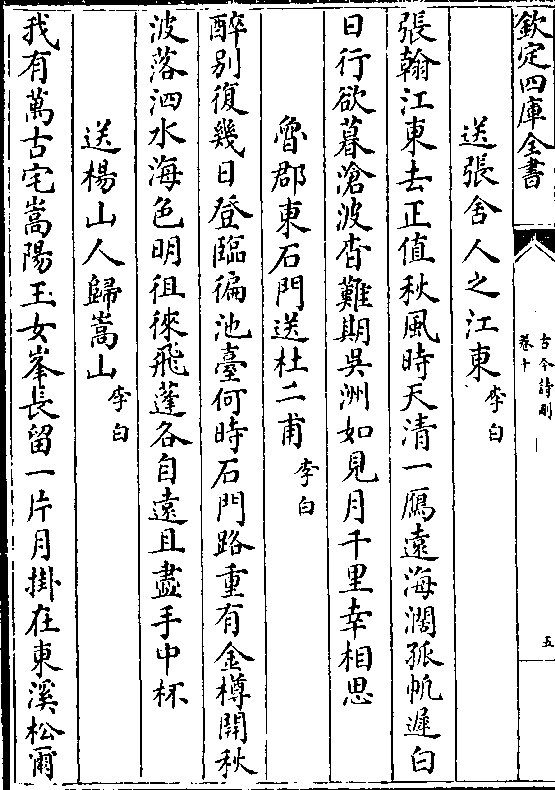 欽定四庫全書
古今詩刪
卷十
五
送張舍人之江東
李白
張翰江東去正值秋風時天清一鴈遠海濶孤帆遲白
日行欲暮滄波杳難期吳洲如見月千里幸相思
魯郡東石門送杜二甫
李白
醉别復幾日登臨徧池臺何時石門路重有金樽開秋
波落泗水海色明徂徠飛蓬各自遠且盡手中杯
送楊山人歸嵩山
李白
我有萬古宅嵩陽玉女峯長留一片月掛在東溪松爾